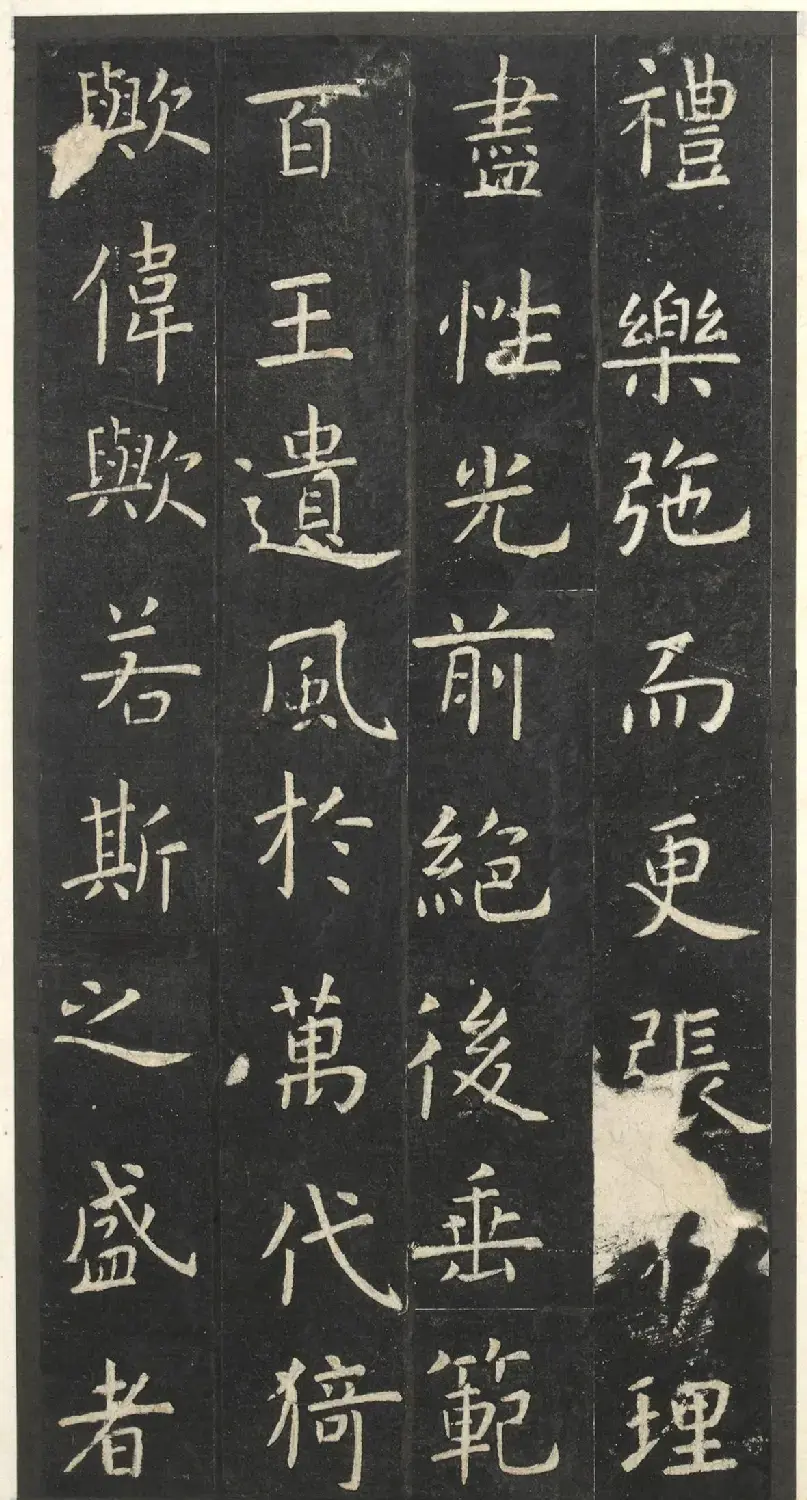 禮樂弛而更張理
盡性光前絕後垂範
百王遺風於萬代猗
歟偉歟若斯之盛者